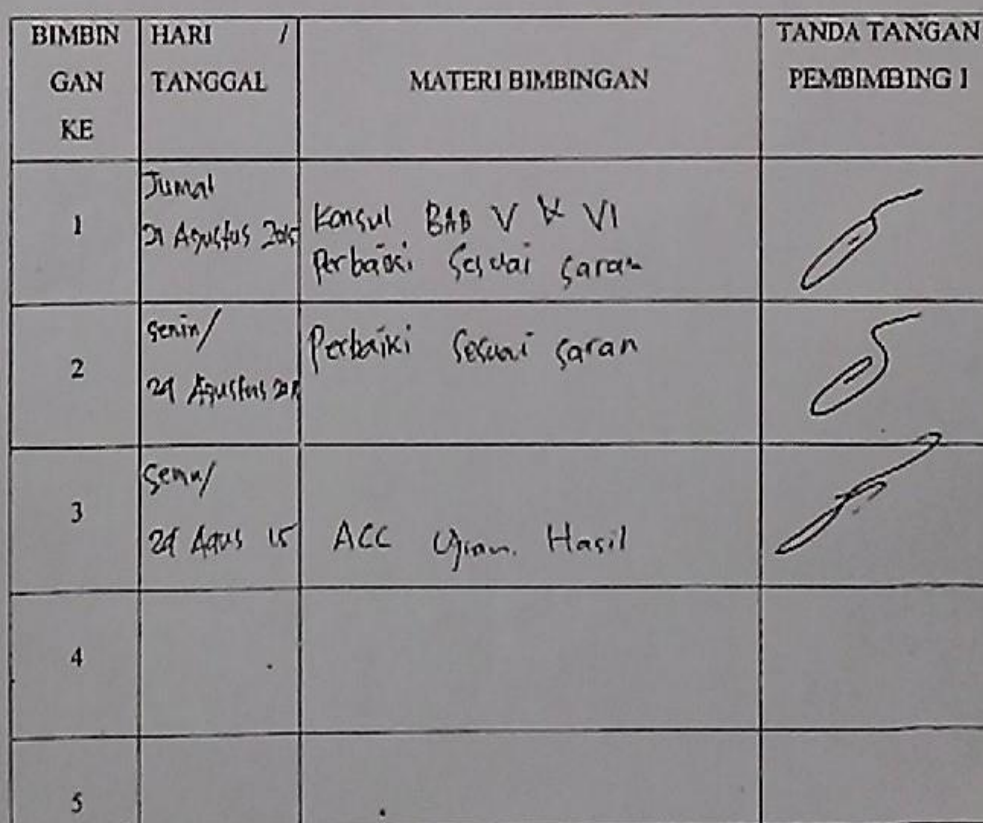 BIMBIN
GAN
KE
HARI /
TANGGAL
MATERI BIMBINGAN
TANDA TANGAN
PEMBIMBING I
1
21 Agustus 2015
Konsul BAB V & VI
Perbaiki Sesuai saran
2
Senin/
24 Agustus
Perbaiki Sesuai saran
3
Senin/
24 Agus 15
ACC Ujian Hasil
4
5